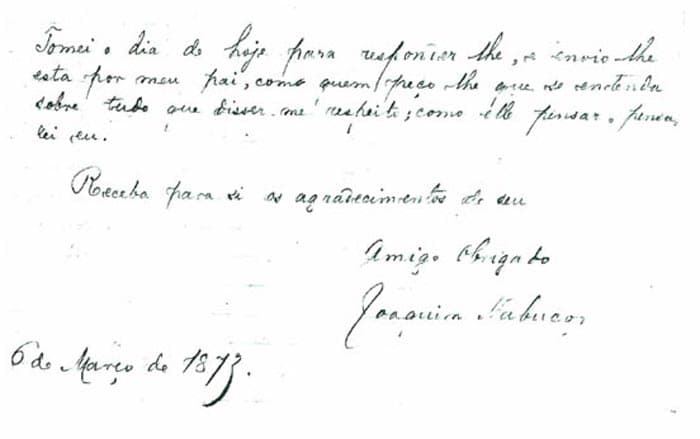 Tomei o dia de hoje para responder lhe, e envio-lhe
esta por meu pai, como quem peço-lhe que se entenda
sobre tudo que disser me respeito; como elle pensar, pensa
rei eu.
Receba para si os agradecimentos de seu
Amigo Obrigado
Joaquim Nabuco
6 de Março de 1873.